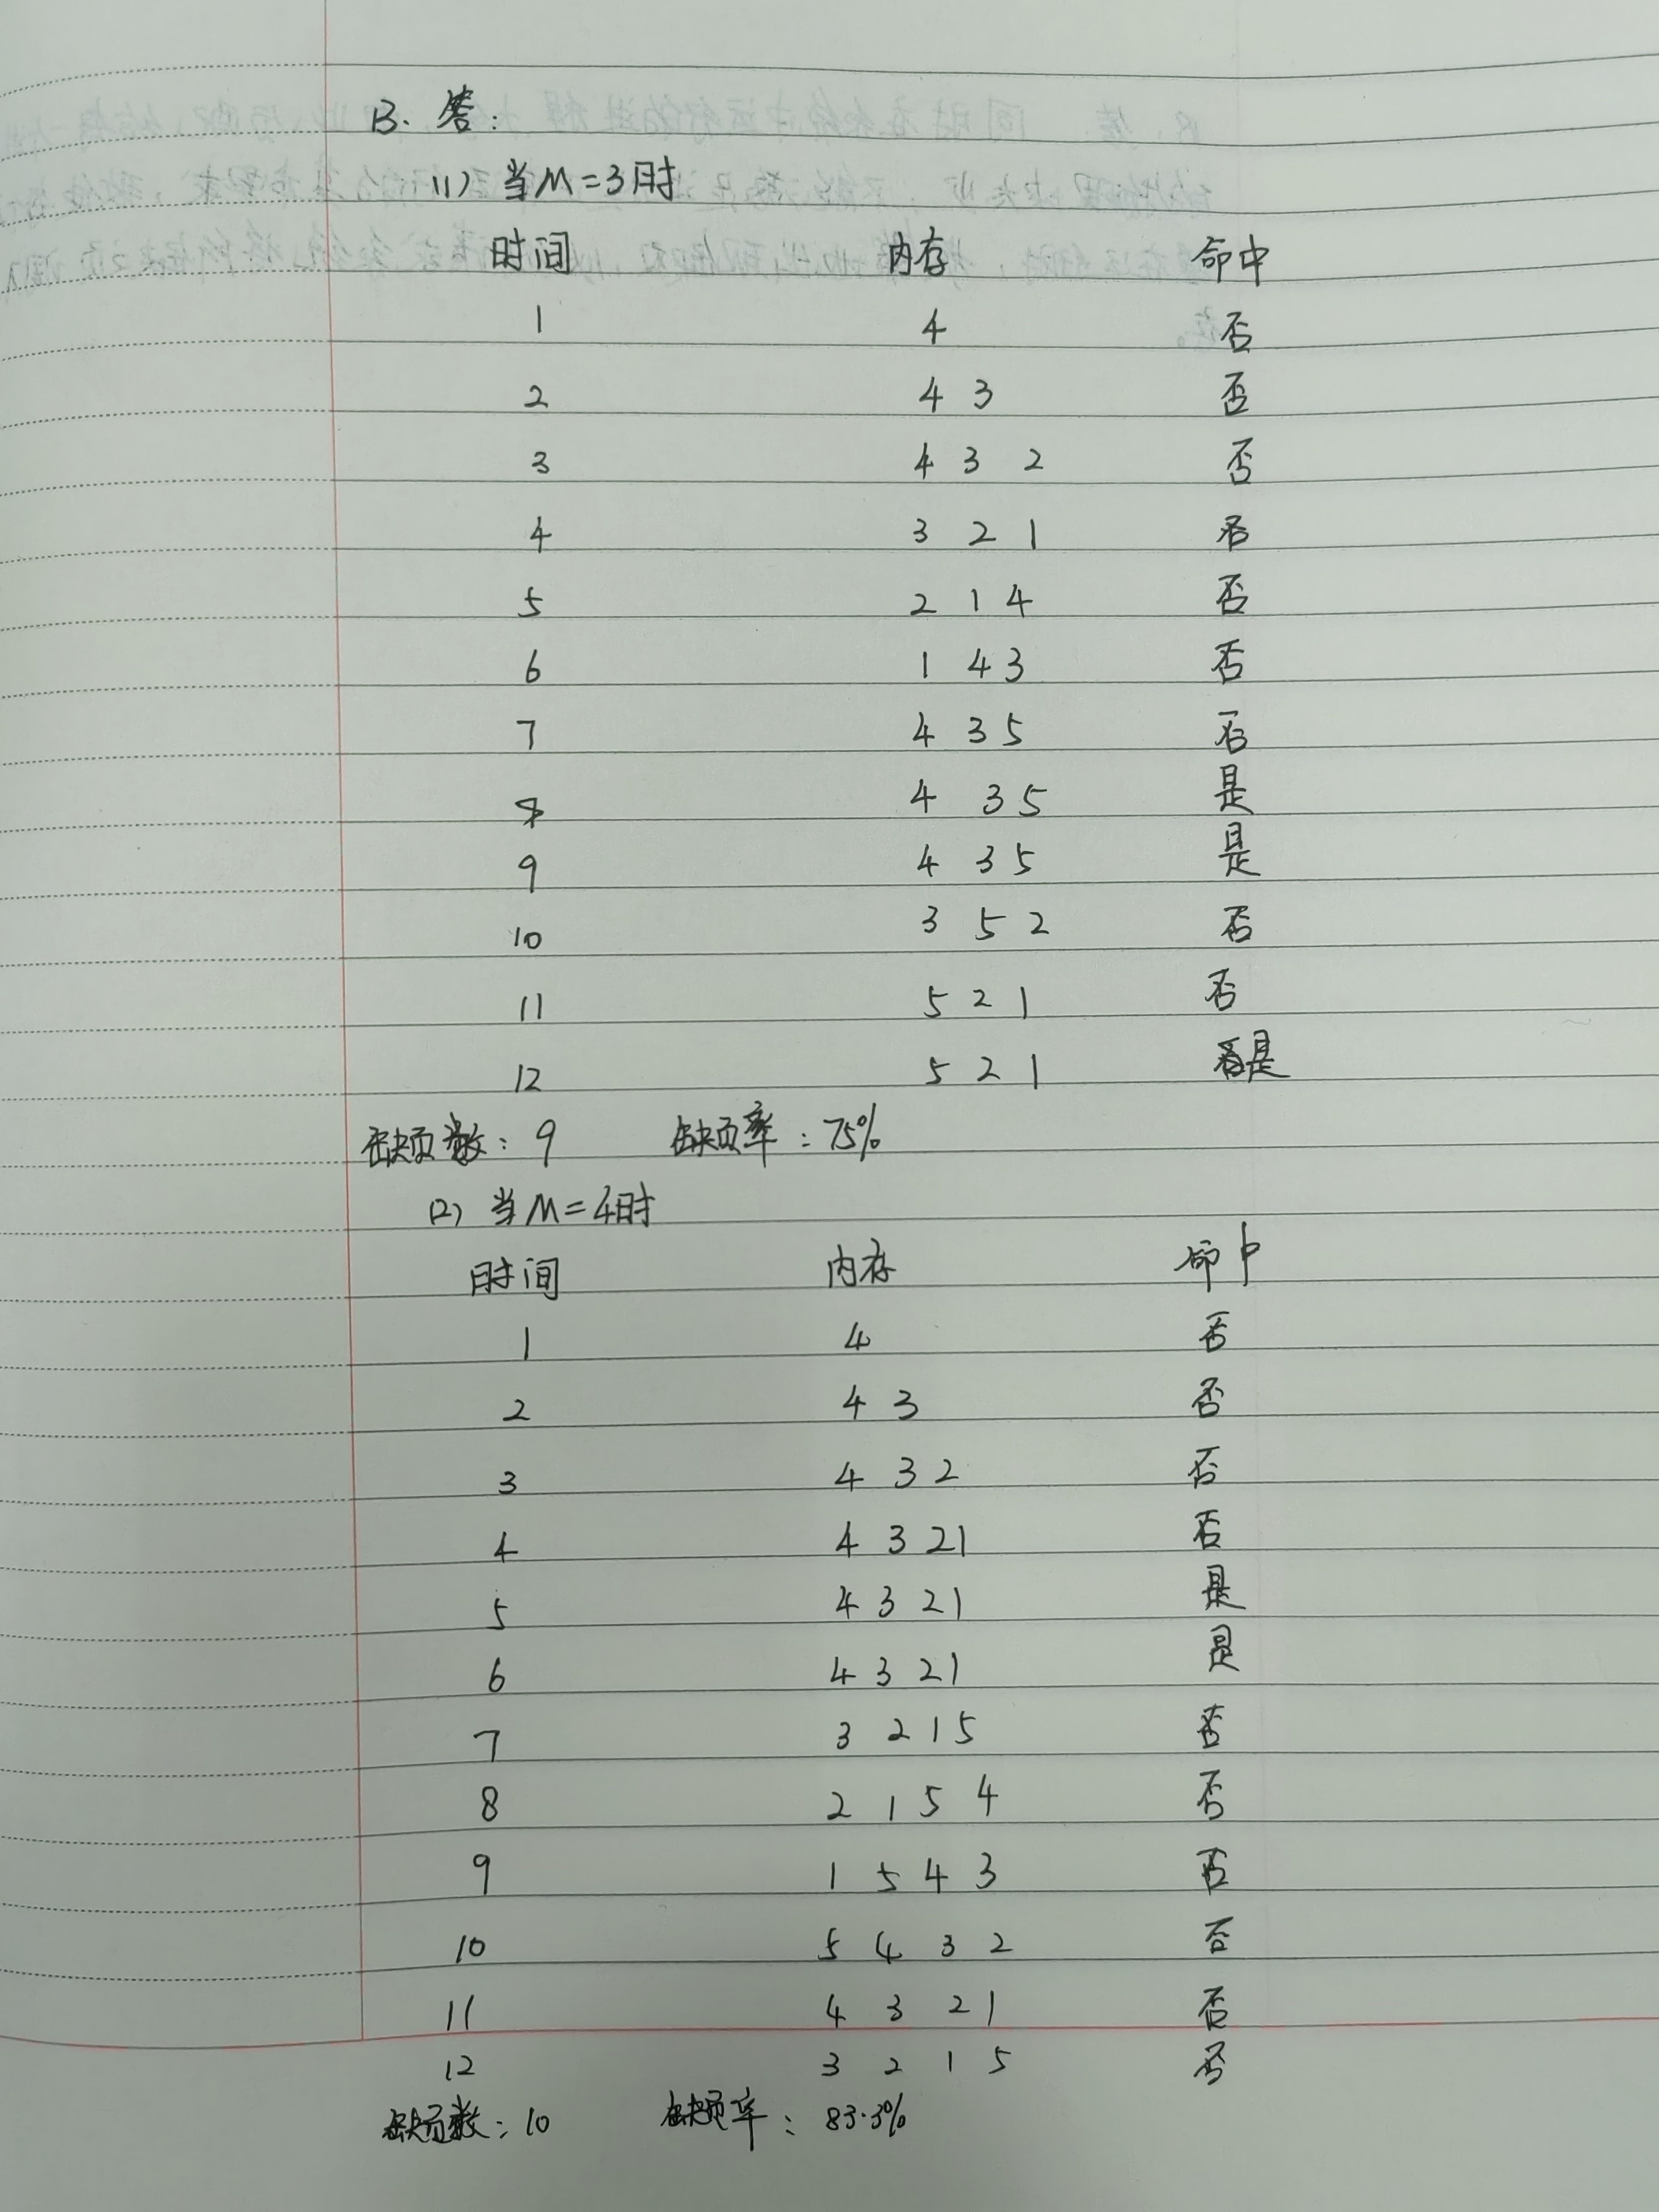 13. 答：
(1) 当M=3时
时间 内存 命中
1 4 否
2 4 3 否
3 4 3 2 否
4 3 2 1 否
5 2 1 4 否
6 1 4 3 否
7 4 3 5 否
8 4 3 5 是
9 4 3 5 是
10 3 5 2 否
11 5 2 1 否
12 5 2 1 是
缺页数：9 缺页率：75%
(2) 当M=4时
时间 内存 命中
1 4 否
2 4 3 否
3 4 3 2 否
4 4 3 2 1 否
5 4 3 2 1 是
6 4 3 2 1 是
7 3 2 1 5 否
8 2 1 5 4 否
9 1 5 4 3 否
10 5 4 3 2 否
11 4 3 2 1 否
12 3 2 1 5 否
缺页数：10 缺页率：83.3%